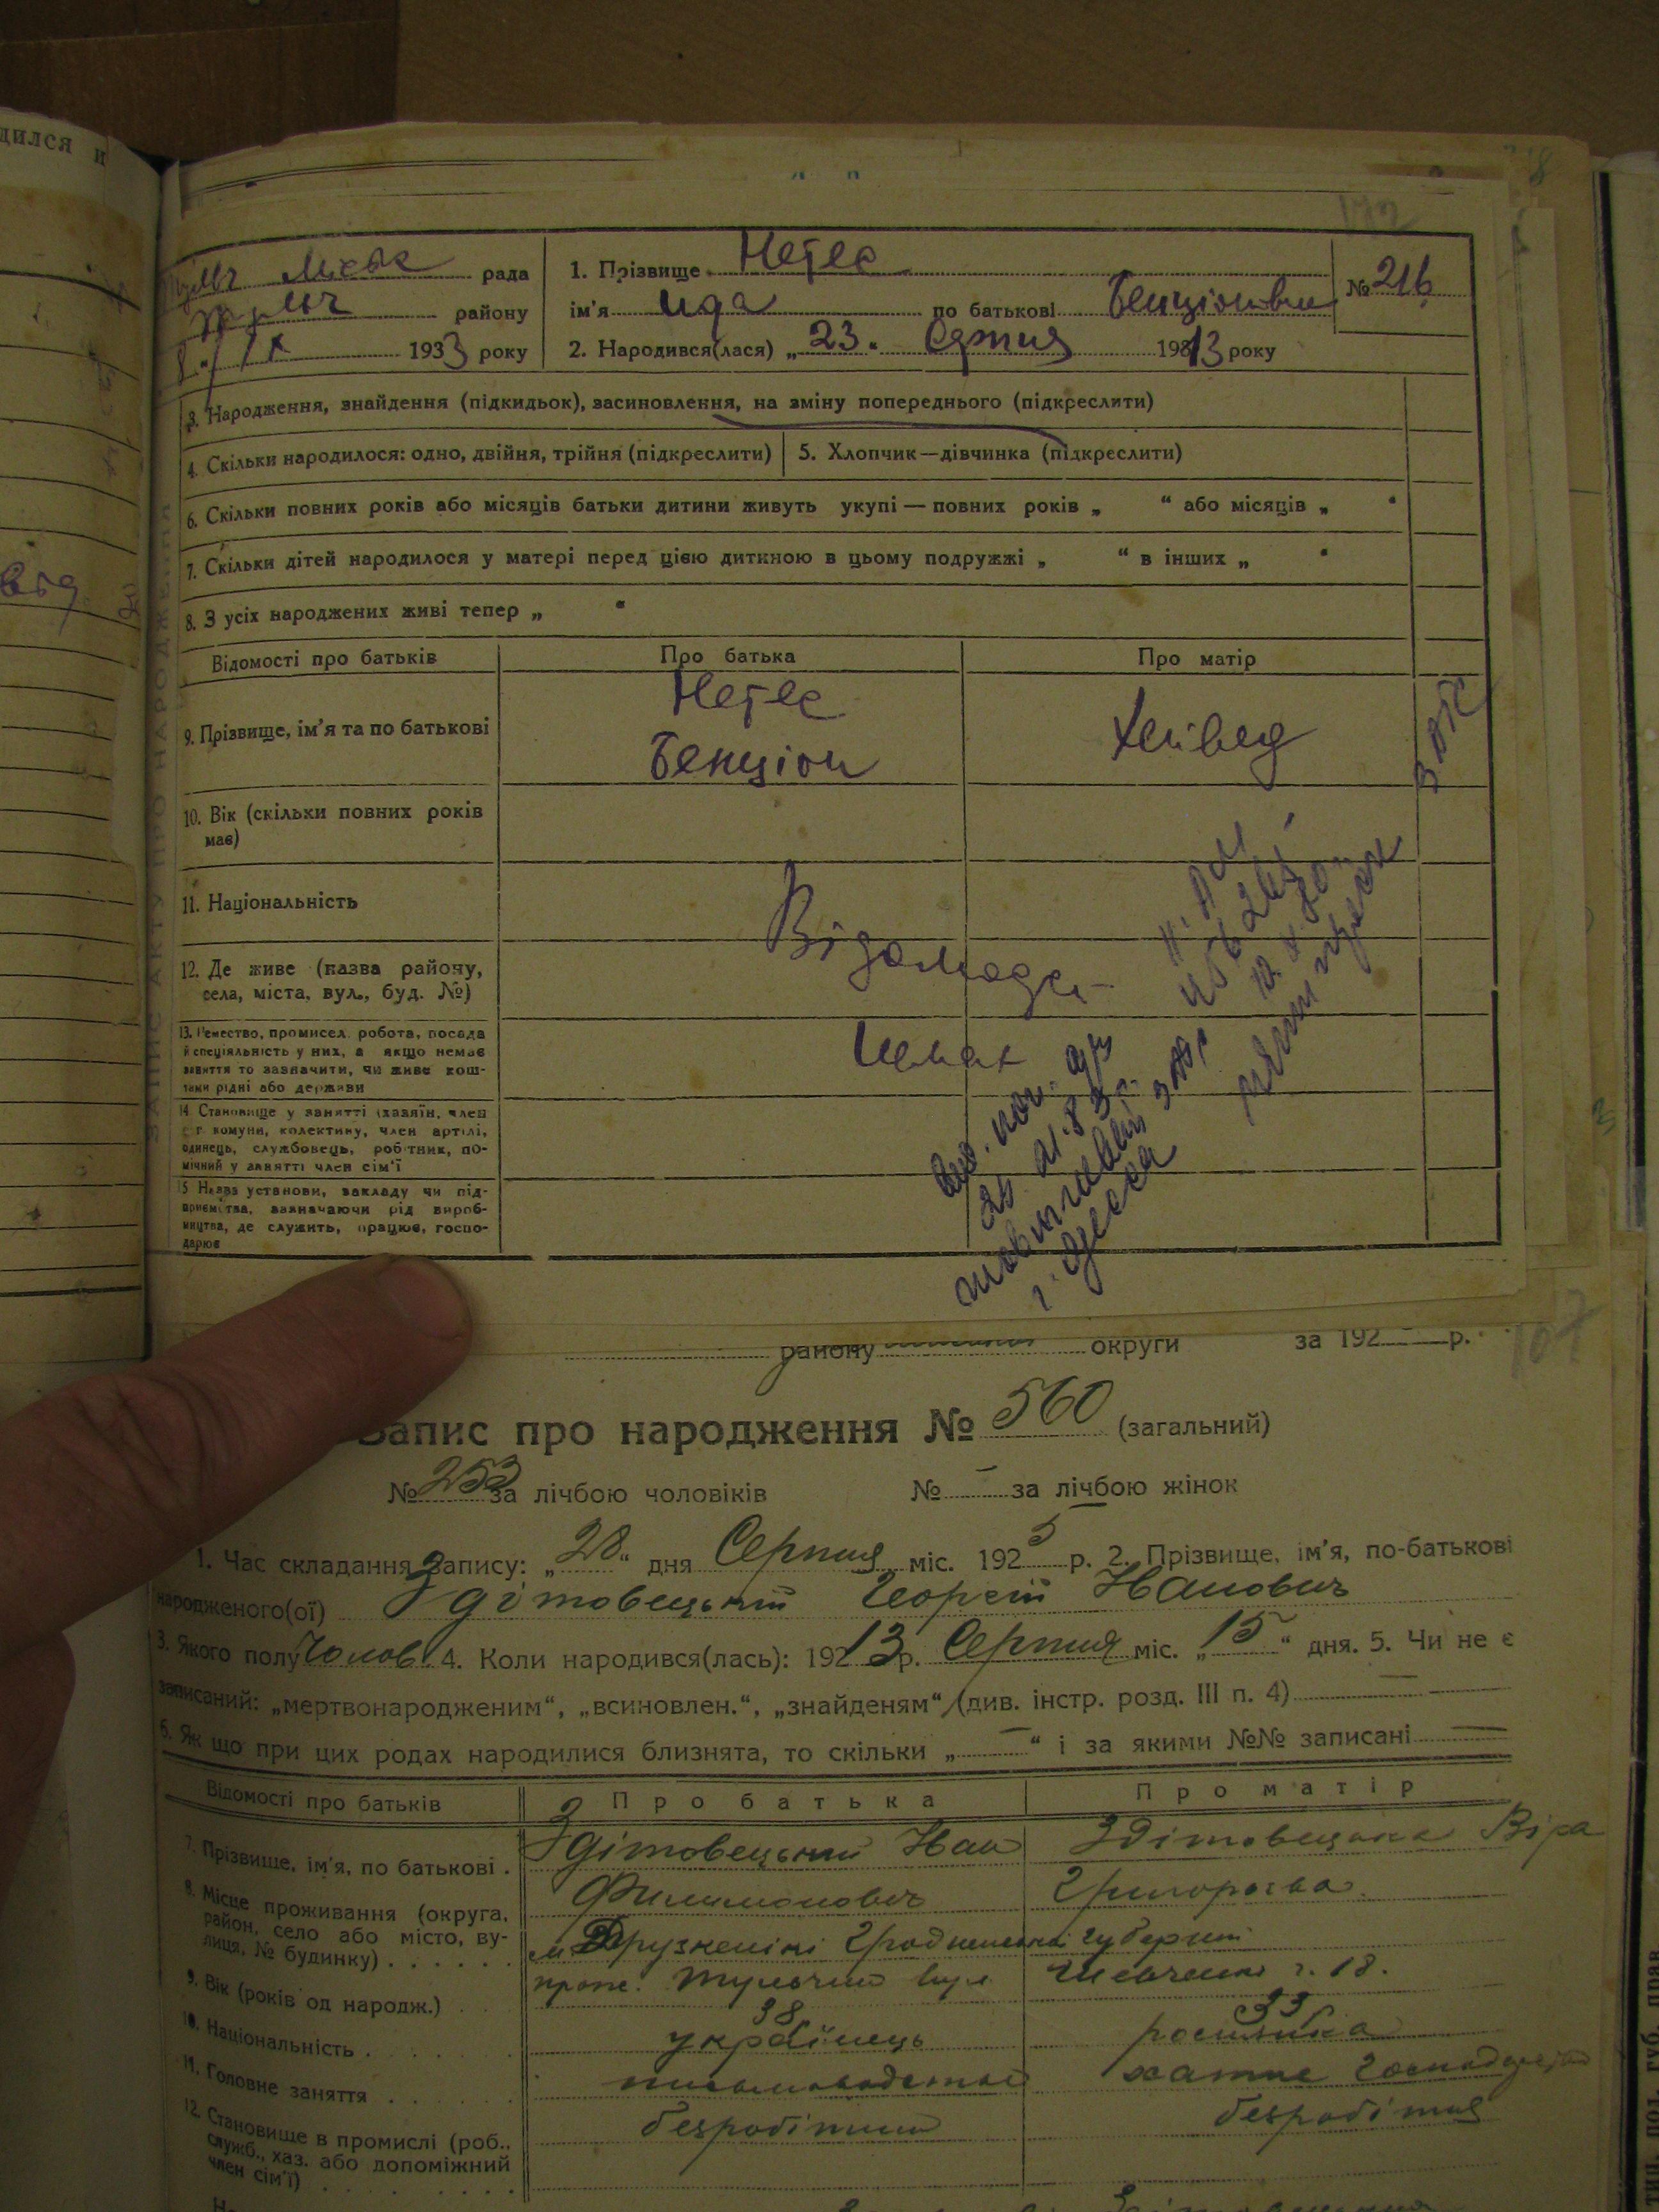 дился и
рада
району
1933 року
1. Прізвище Нетес
ім'я Ида по батькові Бенціонівни
№ 216
2. Народився(лася) „23" Серпня 1913 року
3. Народження, знайдення (підкидьок), засиновлення, на зміну попереднього (підкреслити)
4. Скільки народилося: одно, двійня, трійня (підкреслити) 5. Хлопчик—дівчинка (підкреслити)
6. Скільки повних років або місяців батьки дитини живуть укупі — повних років „ " або місяців „ "
7. Скільки дітей народилося у матері перед цією дитиною в цьому подружжі „ " в інших „ "
8. З усіх народжених живі тепер „ "
Відомості про батьків Про батька Про матір
9. Прізвище, ім'я та по батькові
Нетес
Бенціон
Хейвед
10. Вік (скільки повних років
має)
11. Національність
12. Де живе (назва району,
села, міста, вул., буд. №)
13. Ремество, промисел, робота, посада
й спеціяльність у них, а якщо немає
заняття то зазначити, чи живе кош-
тами рідні або держави
14. Становище у занятті (хазяїн, член
с.-г. комуни, колективу, член артілі,
одинець, службовець, робітник, по-
мічний у занятті член сім'ї
15 Назва установи, закладу чи під-
приємства, зазначаючи рід вироб-
ництва, де служить, працює, госпо-
дарює
Відомостей
Немає
г. Одесса
району округи за 192 р.
107
Запис про народження № 560 (загальний)
№ 253 за лічбою чоловіків № — за лічбою жінок
1. Час складання запису: „28" дня Серпня міс. 1925 р. 2. Прізвище, ім'я, по-батькові
народженого(ої) Здітовецький Георгій Іванович
3. Якого полу Чолов. 4. Коли народився(лась): 1913 р. Серпня міс. „15" дня. 5. Чи не є
записаний: „мертвонародженим", „всиновлен.", „знайденям" (див. інстр. розд. III п. 4)
6. Як що при цих родах народилися близнята, то скільки „—" і за якими №№ записані —
Відомості про батьків Про батька Про матір
7. Прізвище, ім'я, по батькові .
Здітовецький Іван Здітовецька Віра
Филимонович Григорівна
8. Місце проживання (округа,
район, село або місто, ву-
лиця, № будинку) . . . . . .
м. Друзкенікі Гродненської губерні
прож. Тульчин вул Шевченка ч. 18.
9. Вік (років од народж.) 38 33
10. Національність . українець росіянка
11. Головне заняття хатнє господарство
12. Становище в промислі (роб.,
служб., хаз. або допоміжний
член сім'ї)
безробітний безробітня